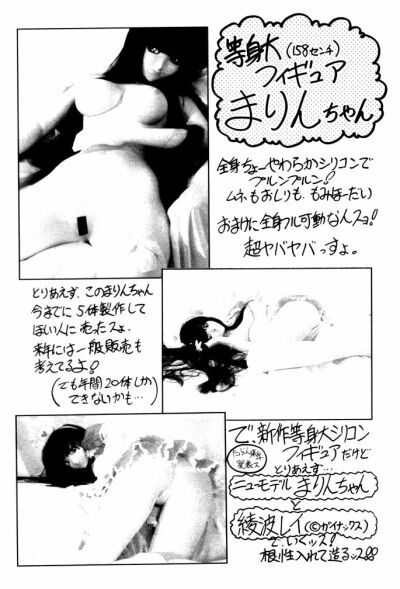 等身大(158センチ)
フィギュア
まりんちゃん
全身ちょーやわらかシリコンで
プルンプルン!
ムネもおしりも、もみほーだい
おまけに全身フル可動なんスョ!
超ヤバヤバっすょ。
とりあえず、このまりんちゃん
今までに5体製作して
ほしい人に売ったスょ、
来年には一般販売も
考えてるよ!
(でも年間20体しか
できないかも…)
で、新作等身大シリコン
フィギュアだけど
とりあえず…
ニューモデルまりんちゃん
と
綾波レイ(©ガイナックス)
で、いくッス!
根性入れて造るッス!!